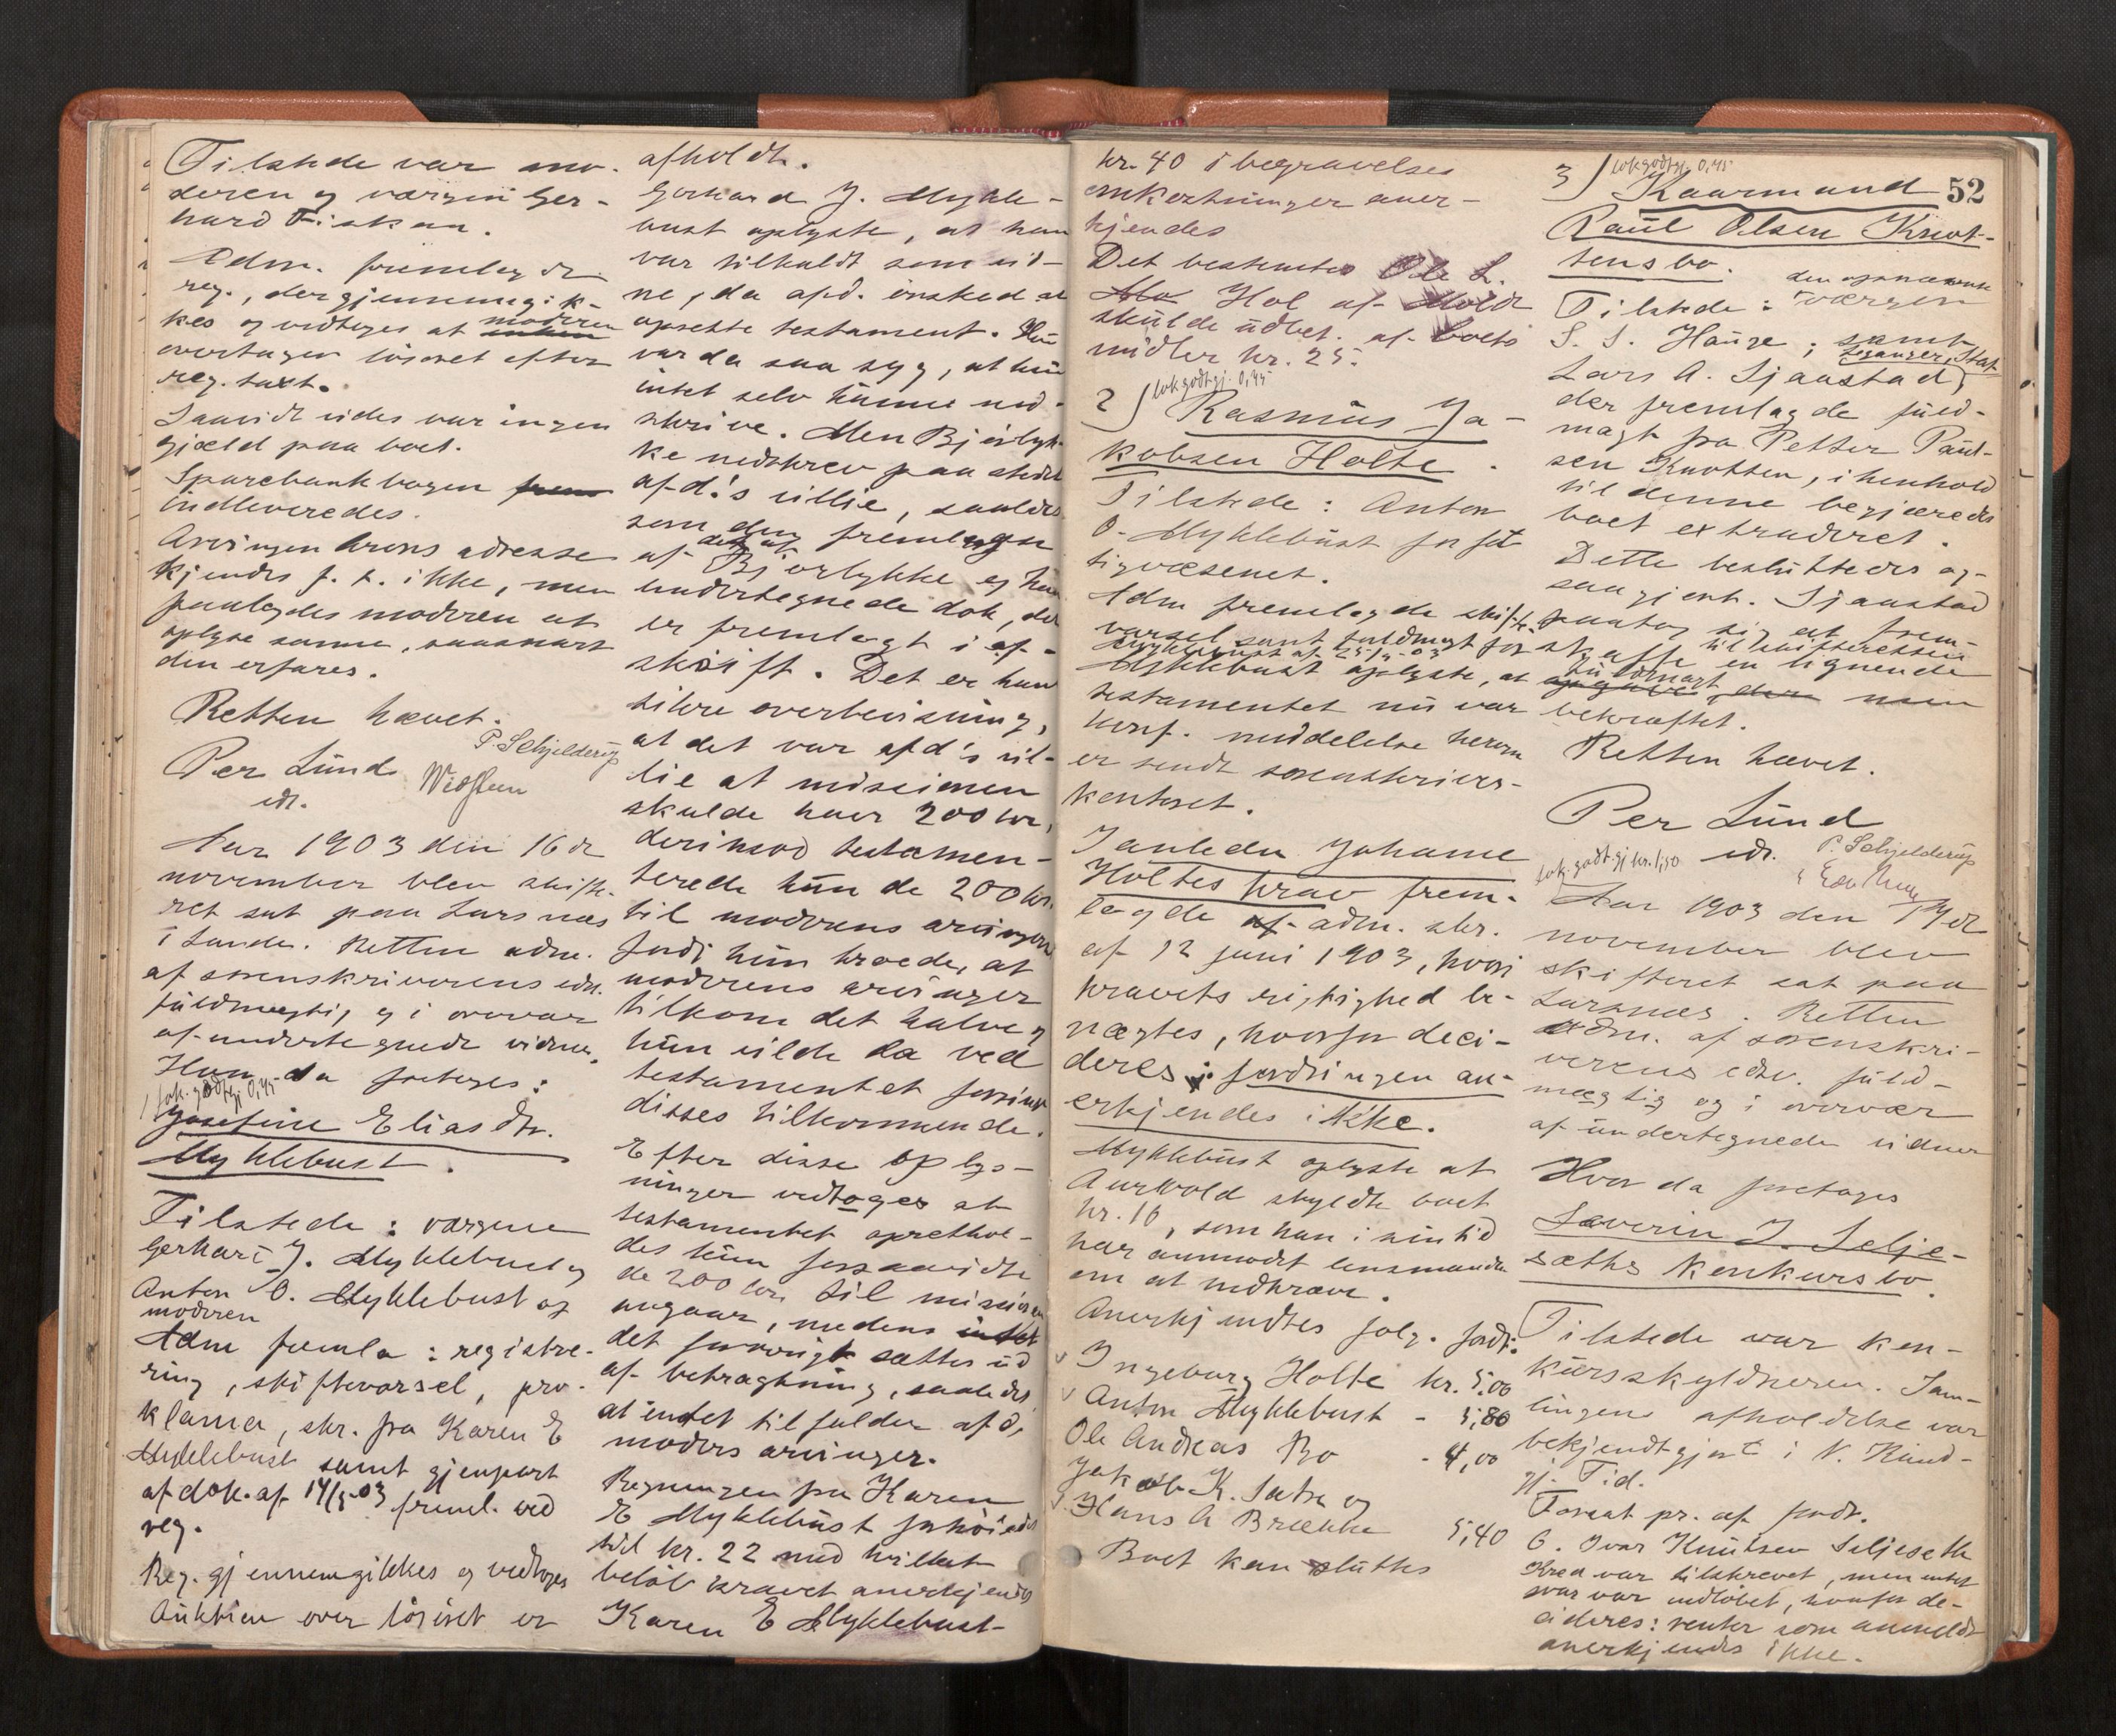 Tilstede var mo-
deren og værgen Ger-
hard Fiskaa.
Adm. fremlagde
reg., der gjennemgik-
kes og vedtoges at moderen
overtager løsøret efter
reg. taxt.
Saavidt vides var ingen
gjæld paa boet.
Sparebankbogen frem
indleveredes.
Arvingen Arons adresse
kjendes f. t. ikke, men
paalagdes moderen at
oplyse samme, saasnart
den erfares.
Retten hævet.
Per Lund
edv.
P. Schjelderup
Aar 1903 den 16de
november blev skifte-
ret sat paa Larsnæs
i Sande. Retten adm.
af sorenskriverens edv.
fuldmægtig og i overvær
af undertegnede vidner.
Hvor da foretoges:
1 lok. godtgj. 0,45
Josefine Eliasdtr.
Myklebust.
Tilstede: værgene
Gerhard J. Myklebust og
Anton O. Myklebust og
moderen
Adm fremla: registre-
ring, skiftevarsel, pro-
klama, skr. fra Karen E
Myklebust samt gjenpart
af dok. af 14/5 03 freml. ved
reg.
Reg. gjennemgikkes og vedtoges
Auktion over løsøret er
afholdt.
Gerhard J. Mykle-
bust oplyste, at han
var tilkaldt som vid-
ne, da afd. ønsked at
opsette testament. Hun
var da saa syg, at hun
intet selv kunne ned-
skrive. Men Bjørlyk-
ke nedskrev paa stedet
afd.'s villie, saaledes
som den fremlagte
af Bjørlykke og ham
undertegnede dok, der
er fremlagt i af-
skrift. Det er hans
sikre overbevisning,
at det var afd's vil-
lie at missionen
skulde have 200 kr,
derimod testamen-
terede hun de 200 kr.
til moderens arvinger
fordi hun troede, at
moderens arvinger
tilkom det halve og
hun vilde da ved
testamentet forøge
disses tilkommende.
Efter disse oplys-
ninger vedtoges at
testamentet oprethol-
des kun forsaavidt
de 200 kr. til missionen
angaar, medens intet
det forøvrigt sættes ud
af betragtning, saaledes
at intet tilfalder afd,
moders arvinger.
Regningen fra Karen
E Myklebust forhøiedes
til kr. 22 med hvilket
beløb kravet anerkjendes
Karen E Myklebust-
kr. 40 i begravelses
omkostninger aner-
kjendes
Det bestemtes Ole L.
Mo Hol af Mold
skulde udbet. af boets
midler kr. 25.
2) lok godtgj. 0,45
Rasmus Ja-
kobsen Holte.
Tilstede: Anton
O. Myklebust for fat-
tigvæsenet.
Adm fremlagde skifte-
varsel samt fuldmagt for
Myklebust af 25/9-03
Myklebust oplyste, at
testamentet nu var
konf. meddelelse herom
er sendt sorenskriver-
kontoret.
I anledn Johanne
Holtes krav frem-
lagde af adm. skr.
af 12 juni 1903, hvori
kravets rigtighed be-
nægtes, hvorfor deci-
deres: fordringen an-
erkjendes ikke.
Myklebust oplyste at
Aurvold skyldte boet
kr. 10, som han i sin tid
har anmodet lensmanden
om at indkræve.
Anerkjendtes følg. fordr:
v Ingeborg Holte kr. 5,00
v Anton Myklebust - 5,80
Ole Andreas Bo - 4,00
Jakob K. Sætre og
v Hans A Brække 5,40
Boet kan sluttes
52
3) lok godtgj. 0,45
Kaarmand
Paul Olsen Knot-
tens bo.
den opnævnte
Tilstede: værgen
S. S. Hauge; samt
Lars A. Sjaastad,
der fremlagde fuld-
magt fra Petter Paul-
sen Knotten, i henhold
til denne begjæredes
boet extraderet.
Dette besluttedes og-
saa gjort. Sjaastad
paatog sig at frem-
til skifteretten
skaffe en lignende
fuldmagt,
bekræftet.
Retten hævet.
Per Lund
edv.
P. Schjelderup
lok. godtgj kr. 1,50
Aar 1903 den 17de
november blev
skifteret sat paa
Larsnæs. Retten
adm. af sorenskri-
verens edsv. fuld-
mægtig og i overvær
af undertegnede vidner
Hvor da foretoges
Severin J. Selje-
sæths konkursbo.
Tilstede var kon-
kursskyldneren. Sam-
lingens afholdelse var
bekjendtgjort i N. Kund-
gj. Tid.
Forsat pr. af fordr.
6. Ivar Knutsen Seljeseth
Kred var tilskrevet, men intet
svar var indløbet, hvorfor de-
cideres: renter som anmeldt
anerkjendes ikke.